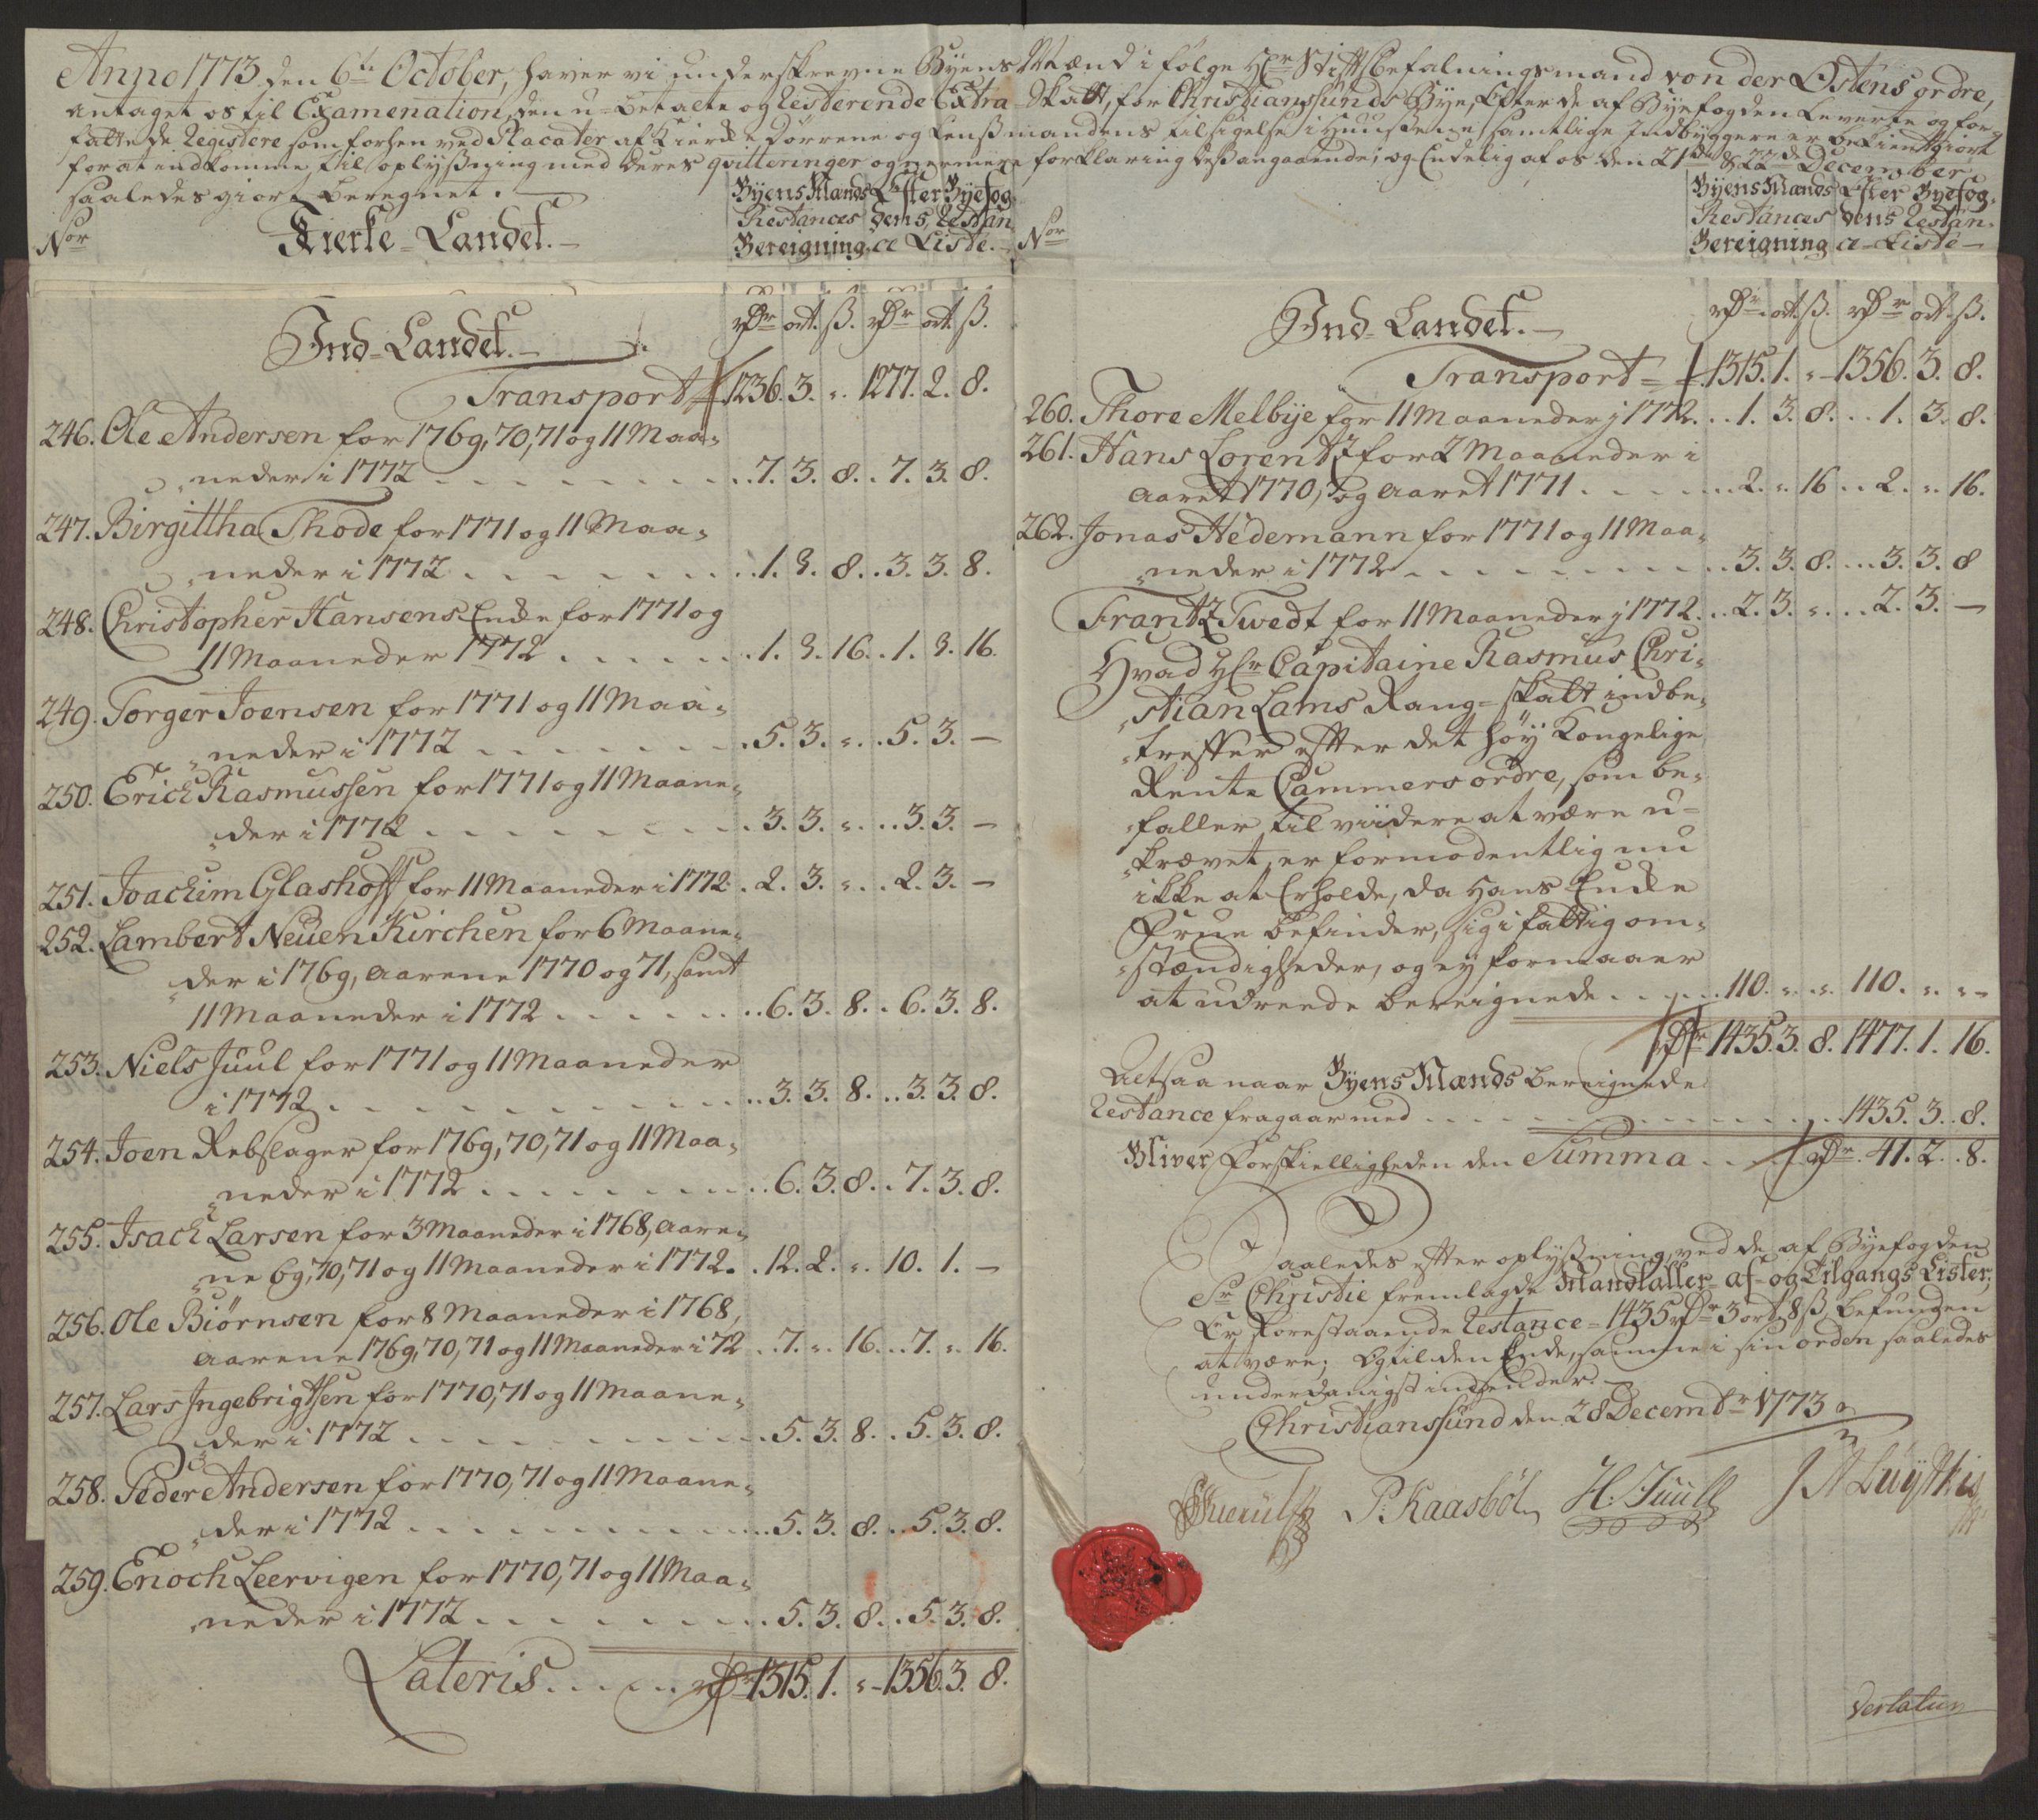 Anno 1773 den 6te October, haver vi underskrevne Byens Mænd i følge Hr Stiftbefalningsmand von der Østens ordre,
antaget os til Examenation, den u-betalte og Resterende Extra-Skatt, for Christiansunds Bye, Efter de af Byefogden Leverte og for-
fattede Registere som forhen ved Placater af Kirke Dørrene og Lensmandens tilsigelse i Huusene samtlige Indbyggere er bekientgiort
for at indkomme til oplyssning med deres qvitteringer og nærmere forklaring desangaaende; og Endelig af os den 21de & 22de December
saaledes giort Beregnet.
Nor
Kierke-Landet.
Byens Mænds Restances Bereigning.
Efter Byefogdens Restance Liste.
Ind-Landet.
rdr ort. ß. rdr ort. ß.
Transport 1236. 3. „. 1277. 2. 8.
246. Ole Andersen for 1769, 70, 71 og 11 Maa-
neder i 1772 . . . 7. 3. 8. . 7. 3. 8.
247. Birgittha Thode for 1771 og 11 Maa-
neder i 1772 . . . 1. 3. 8. . 3. 3. 8.
248. Christopher Hansens Enke for 1771 og
11 Maaneder 1772 . . . 1. 3. 16. . 1. 3. 16.
249. Torger Joensen for 1771 og 11 Maa-
neder i 1772 . . . 5. 3. „. . 5. 3. —
250. Erich Rasmussen for 1771 og 11 Maane-
der i 1772 . . . 3. 3. „. . 3. 3. —
251. Joachim Glashoff for 11 Maaneder i 1772 . 2. 3. „. . 2. 3. —
252. Lambert Neuen Kirchen for 6 Maane-
der i 1769, Aarene 1770 og 71, samt
11 Maaneder i 1772 . . . 6. 3. 8. . 6. 3. 8.
253. Niels Juul for 1771 og 11 Maaneder
i 1772 . . . 3. 3. 8. . 3. 3. 8.
254. Joen Rebslager for 1769, 70, 71 og 11 Maa-
neder i 1772 . . . 6. 3. 8. . 7. 3. 8.
255. Isach Larsen for 3 Maaneder i 1768, Aare-
ne 69, 70, 71 og 11 Maaneder i 1772. . 12. 2. „. 10. 1. —
256. Ole Biørnsen for 8 Maaneder i 1768,
Aarene 1769, 70, 71 og 11 Maaneder i 72 . . 7. „. 16. . 7. „. 16.
257. Lars Ingebrigtsen for 1770, 71 og 11 Maane-
der i 1772 . . . 5. 3. 8. . 5. 3. 8.
258. Peder Andersen for 1770, 71 og 11 Maane-
der i 1772 . . . 5. 3. 8. . 5. 3. 8.
259. Enoch Leervigen for 1770, 71 og 11 Maa-
neder i 1772 . . . 5. 3. 8. . 5. 3. 8.
Lateris . . . rdr 1315. 1. „ - 1356. 3. 8.
Nor
Byens Mænds Restances Bereigning
Efter Byefogdens Restance-Liste
Ind-Landet.
rdr. ort. ß. rdr ort. ß.
Transport 1315. 1. „ - 1356. 3. 8.
260. Thore Melbye for 11 Maaneder j 1772. . . 1. 3. 8. . . 1. 3. 8.
261. Hans Lorentz for 2 Maaneder i
Aaret 1770, og Aaret 1771 . . . 2. „. 16 . . 2. „. 16.
262. Jonas Hedemann for 1771 og 11 Maa-
neder i 1772 . . . 3. 3. 8. . . 3. 3. 8
Frantz Twedt for 11 Maaneder j 1772. . . 2. 3. „. . . 2. 3. —
Hvad Hr Capitaine Rasmus Chri-
stian Lams Rang-skatt indbe-
treffer efter det høy Kongelige
Rente Cammers ordre, som be-
faller til viidere at være u-
krævet, er formodentlig nu
ikke at Erholde, da hans Enke
Frue befinder sig i fattig om-
stændigheder, og ey formaaer
at udreede bereignede . . . 110. „. „. 110. „. „ -
rdr 1435. 3. 8. 1477. 1. 16.
Altsaa naar Byens Mænds bereignede
Restance fragaar med . . . 1435. 3. . 8.
Bliver forskielligheden den Summa . . . rdr. 41. 2. . 8.
Saaledes efter oplyssning, ved de af Byefogden
Sr Christie fremlagde Mandtaller- af- og Tilgangs Lister,
Er Forestaaende Restance - 1435 rdr 3 ort 8 ß befunden
at være; og til den Ende, samme i sin orden saaledes
underdanigst indsender.
Christianssund den 28 Decembr 1773
P: Kaasbøl H: Juull
Verlatur